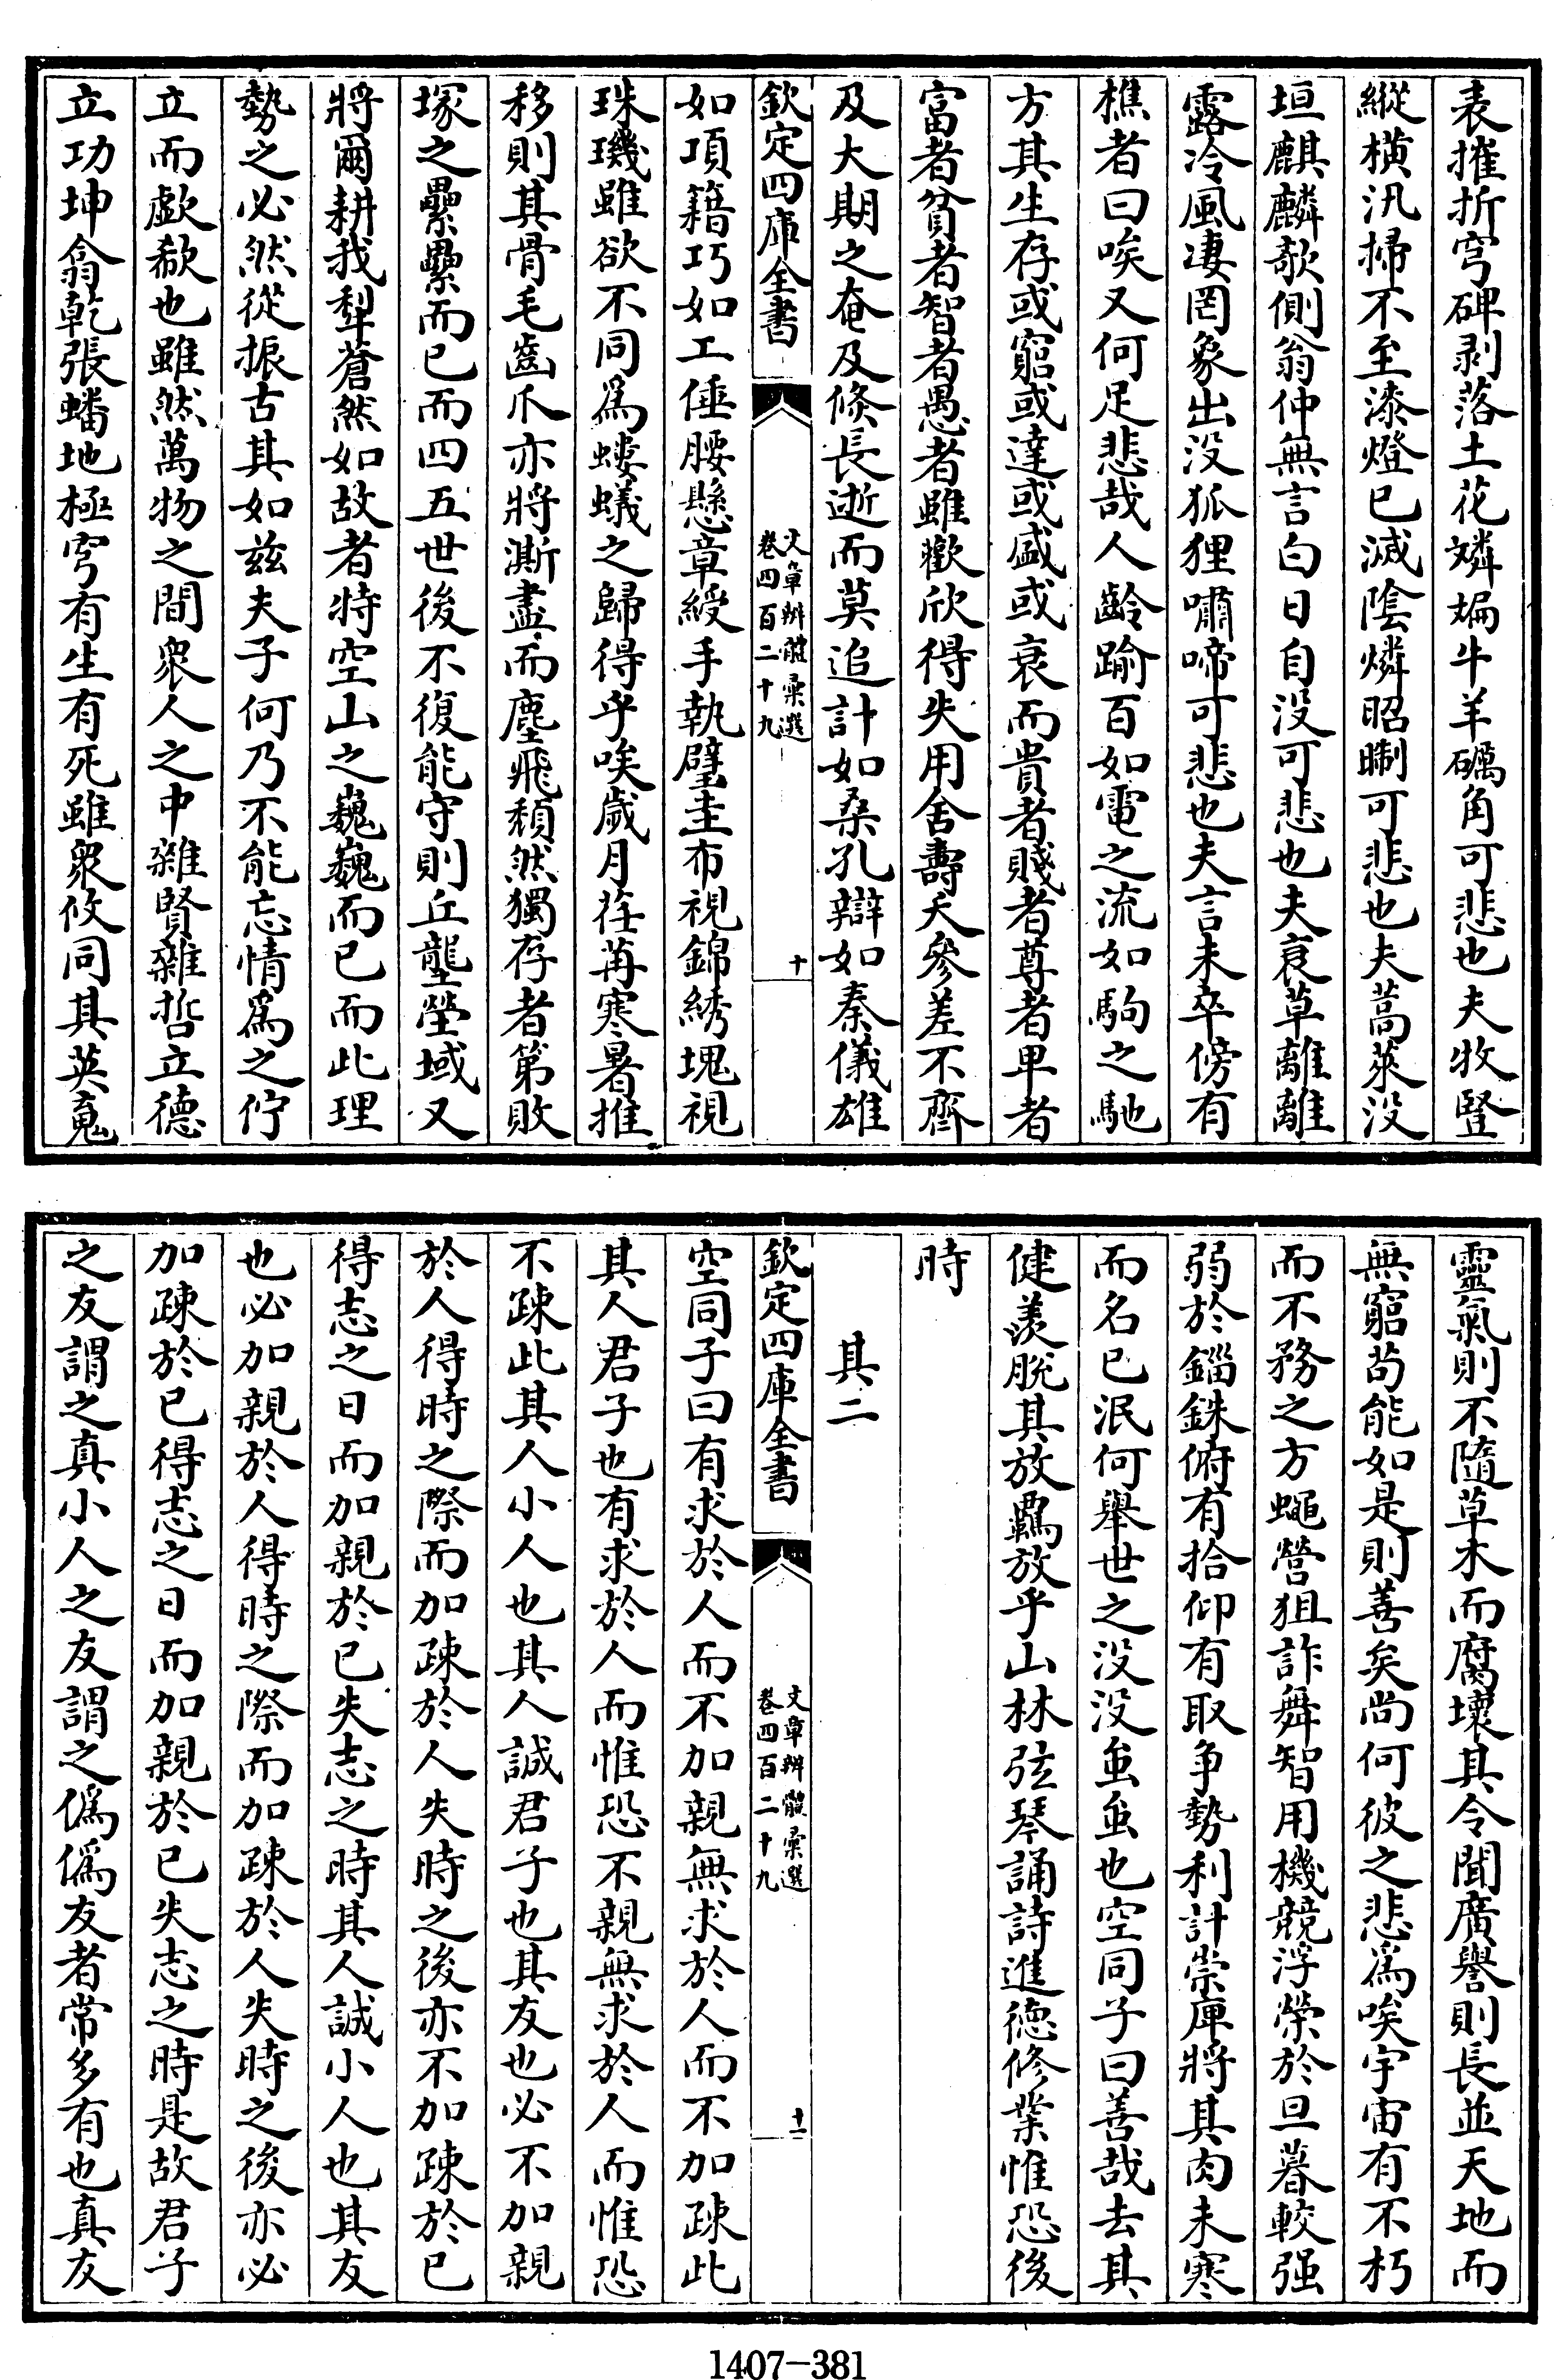 表摧折穹碑剥落土花燐斒牛羊礪角可悲也夫牧豎
縱橫汛掃不至漆燈已滅陰燐昭晣可悲也夫蒿萊没
垣麒麟欹側翁仲無言白日自没可悲也夫衰草離離
露冷風凄罔象出没狐狸嘯啼可悲也夫言未卒傍有
樵者曰唉又何足悲哉人齡踰百如電之流如駒之馳
方其生存或窮或達或盛或衰而貴者賤者尊者卑者
富者貧者智者愚者雖歡欣得失用舍壽夭參差不齊
及大期之奄及倏長逝而莫追計如桑孔辯如秦儀雄
欽定四庫全書
文章辨體彙選
卷四百二十九
十
如項籍巧如工倕腰懸章綬手執璧圭布視錦綉塊視
珠璣雖欲不同為螻蟻之歸得乎唉歲月荏苒寒暑推
移則其骨毛齒爪亦將澌盡而塵飛頹然獨存者第敗
塚之纍纍而已而四五世後不復能守則丘壟塋域又
將爾耕我犁蒼然如故者特空山之巍巍而已而此理
勢之必然從振古其如兹夫子何乃不能忘情為之佇
立而歔欷也雖然萬物之間衆人之中雜賢雜哲立德
立功坤翕乾張蟠地極穹有生有死雖衆攸同其英䰟
靈氣則不隨草木而腐壞其令聞廣譽則長並天地而
無窮茍能如是則善矣尚何彼之悲為唉宇宙有不朽
而不務之方蠅營狙詐舞智用機競浮榮於旦暮較强
弱於錙銖俯有拾仰有取争勢利計崇庳將其肉未寒
而名已泯何舉世之没没蚩蚩也空同子曰善哉去其
健羨脱其放羈放乎山林弦琴誦詩進德修業惟恐後
時
其二
欽定四庫全書
文章辨體彙選
卷四百二十九
十一
空同子曰有求於人而不加親無求於人而不加疎此
其人君子也有求於人而惟恐不親無求於人而惟恐
不疎此其人小人也其人誠君子也其友也必不加親
於人得時之際而加疎於人失時之後亦不加疎於已
得志之日而加親於已失志之時其人誠小人也其友
也必加親於人得時之際而加疎於人失時之後亦必
加疎於已得志之日而加親於已失志之時是故君子
之友謂之真小人之友謂之僞僞友者常多有也真友
1407-381